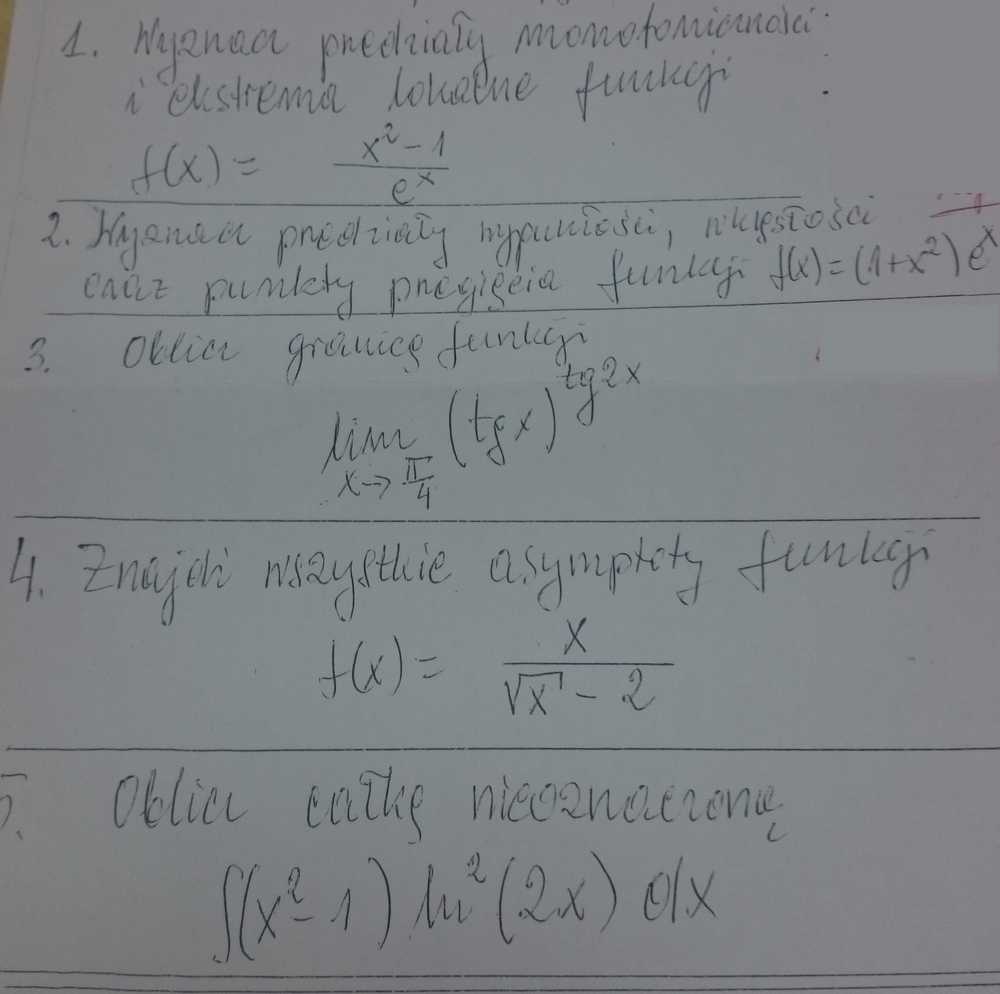 1. Wyznacz przedziały monotoniczności
i ekstrema lokalne funkcji
f(x) = \frac{x^2-1}{e^x}
2. Wyznacz przedziały wypukłości, wklęsłości
oraz punkty przegięcia funkcji f(x) = (1+x^2) e^x
3. Oblicz granicę funkcji
\lim_{x \to \frac{\pi}{4}} (tg x)^{tg 2x}
4. Znajdź wszystkie asymptoty funkcji
f(x) = \frac{x}{\sqrt{x} - 2}
5. Oblicz całkę nieoznaczoną
∫(x^2-1) ln^2 (2x) dx